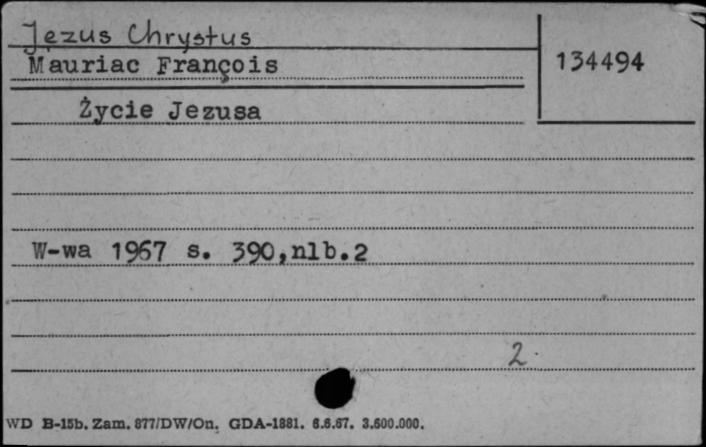 Jezus Chrystus
Mauriac François
134494
Życie Jezusa
W-wa 1967 s. 390,nlb.2
2.
WD B-15b. Zam. 877/DW/On. GDA-1881. 6.6.67. 3.600.000.